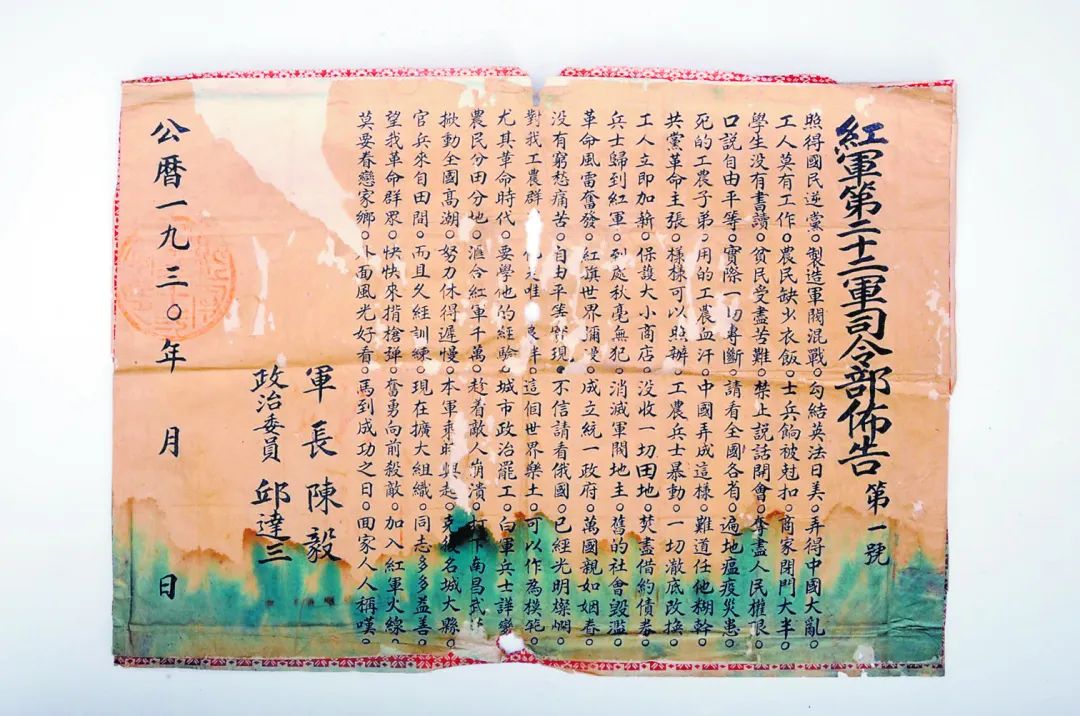 紅軍第二十二軍司令部佈告 第一號
照得國民逆黨。製造軍閥混戰。勾結英法日美。弄得中國大亂。
工人莫有工作。農民缺少衣飯。士兵餉被尅扣。商家閉門大半。
學生没有書讀。貧民受盡苦難。禁止説話開會。奪盡人民權限。
口説自由平等。實際一切專斷。請看全國各省。遍地瘟疫災患。
死的工農子弟。用的工農血汗。中國弄成這樣。難道任他糊幹。
共黨革命主張。樣樣可以照辦。工農兵士暴動。一切澈底改換。
工人立即加薪。保護大小商店。没收一切田地。焚盡借約債券。
兵士歸到紅軍。到處秋毫無犯。消滅軍閥地主。舊的社會毀濫。
革命風雷奮發。紅旗世界瀰漫。成立統一政府。萬國親如姻眷。
没有窮愁痛苦。自由平等實現。不信請看俄國。已經光明燦爛。
對我工農群 他是唯 伴。這個世界樂土。可以作為模範。
尤其革命時代。要學他的經驗。城市政治罷工。白軍兵士譁變。
農民分田分地。滙合紅軍千萬。趁着敵人崩潰。打下南昌武
掀動全國高潮。努力休得遲慢。本軍乘時興起。克復名城大縣。
官兵來自田間。而且久經訓練。現在擴大組織。同志多多益善。
望我革命群眾。快快來揹槍彈。奮勇向前殺敵。加入紅軍火線。
莫要眷戀家鄉。外面風光好看。馬到成功之日。回家人人稱嘆。
軍長 陳毅
政治委員 邱達三
公曆一九三〇年 月 日